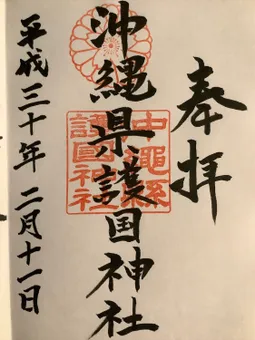 奉拝
沖縄県護国神社
沖縄縣護國神社
平成三十年二月十一日